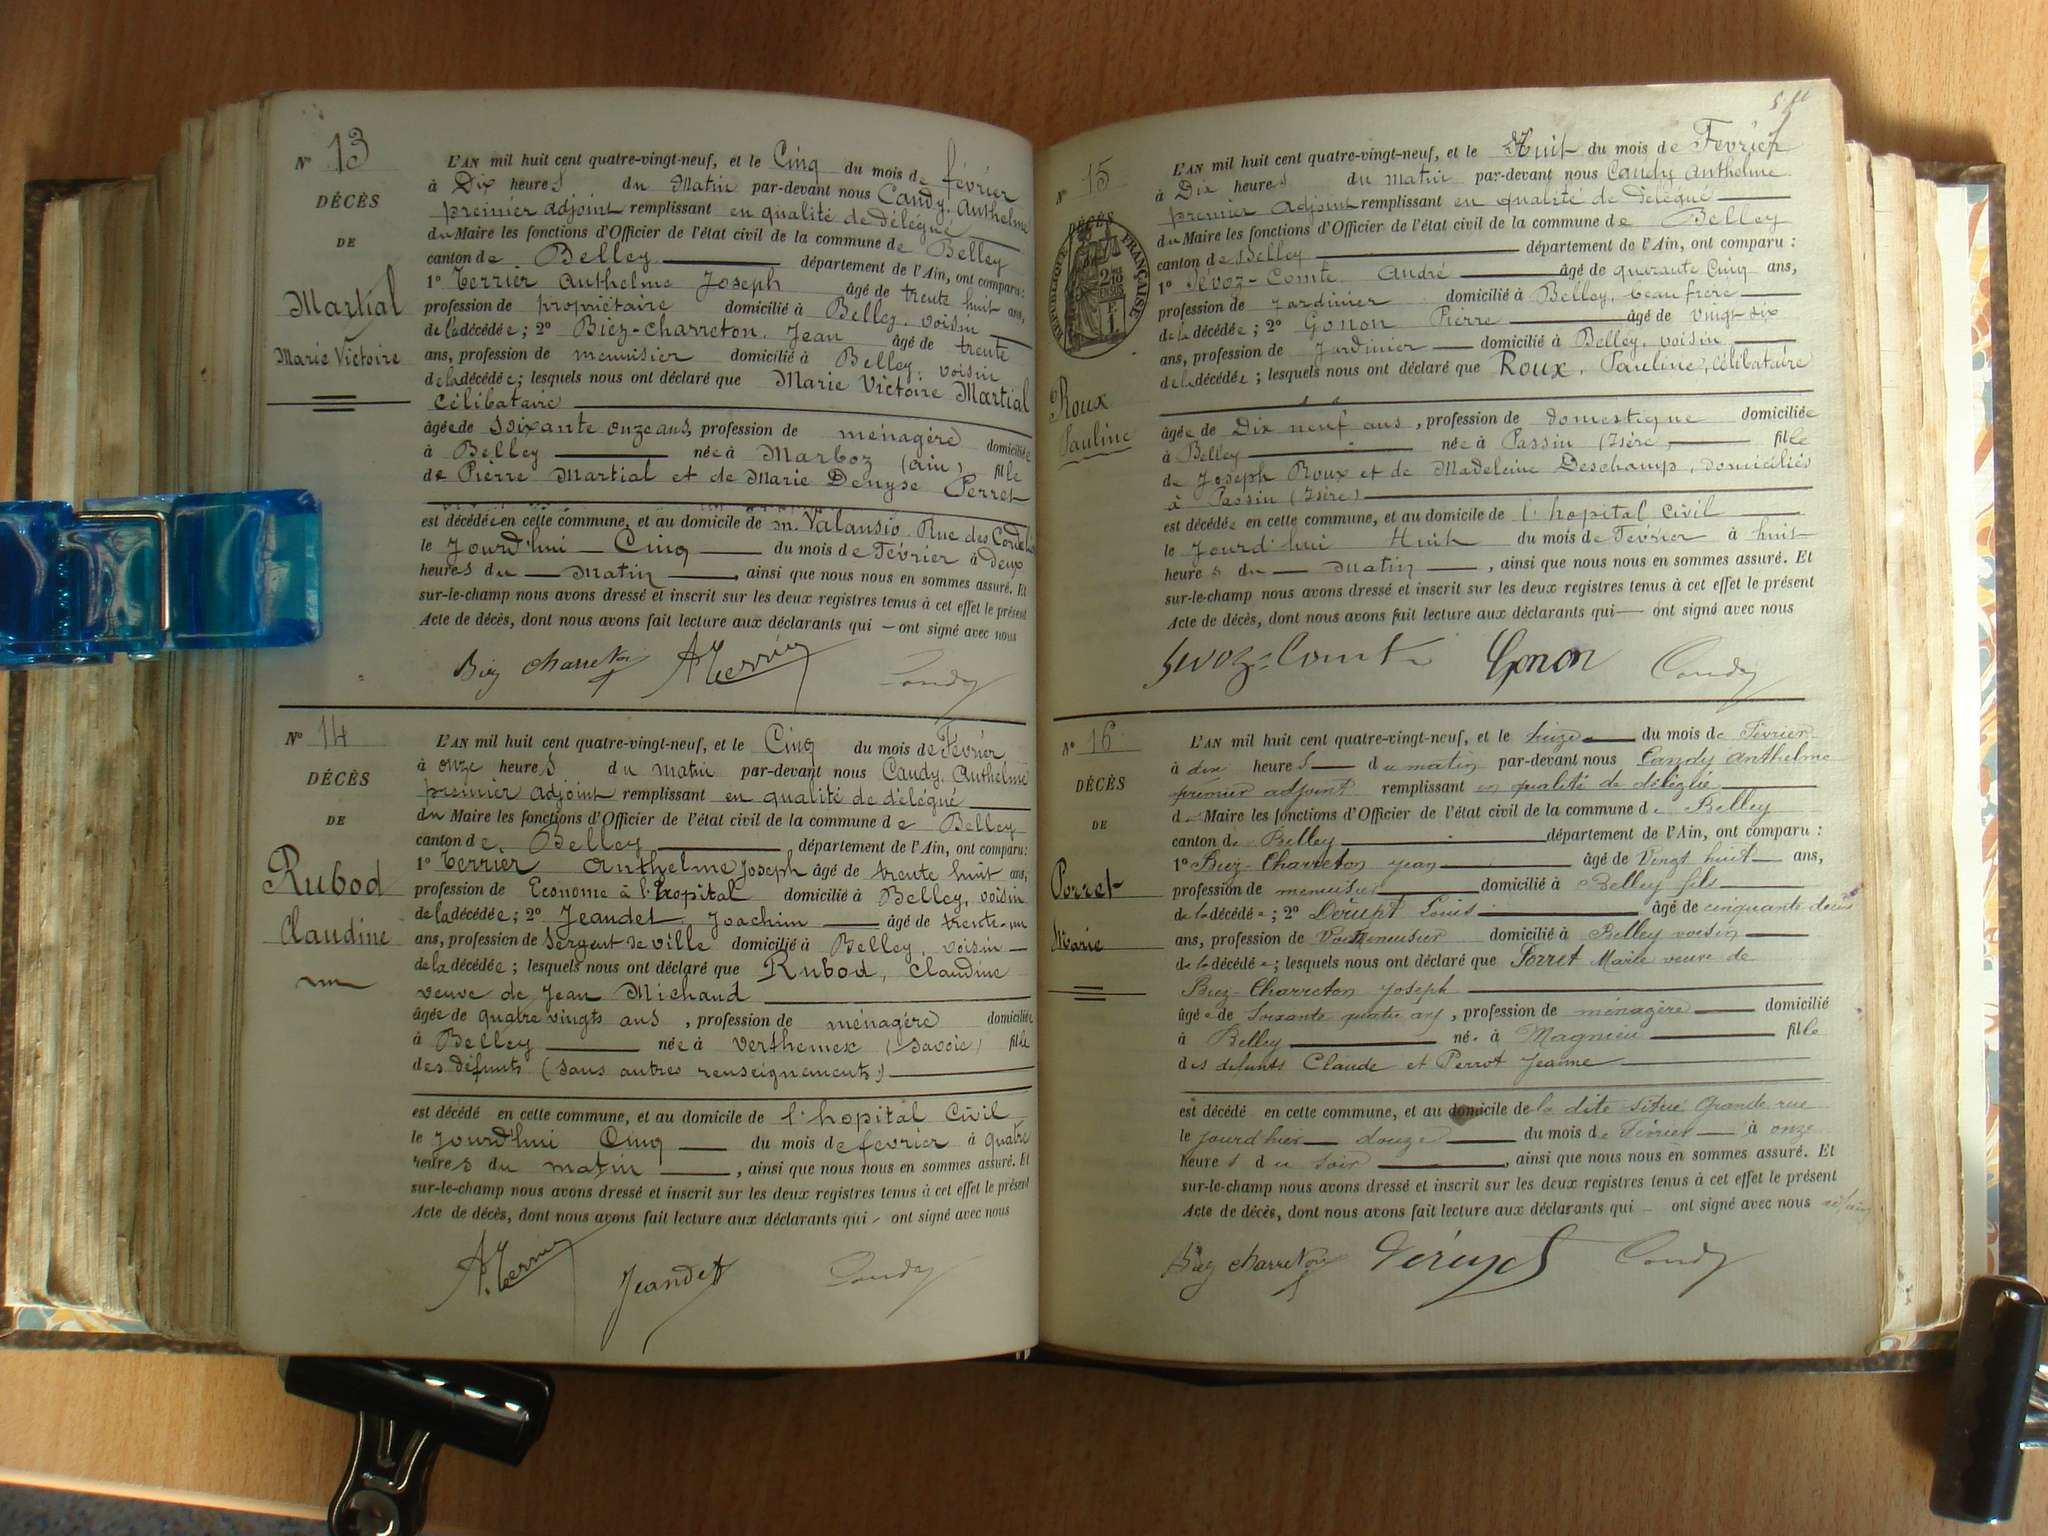 Nº 13
DÉCÈS
DE
Martial
Marie Victoire
L'AN mil huit cent quatre-vingt-neuf, et le Cinq du mois de février
à Dix heures du Matin par-devant nous Candy, Anthelme
premier adjoint remplissant en qualité de délégué
du Maire les fonctions d'Officier de l'état civil de la commune de Belley
canton de Belley département de l'Ain, ont comparu :
1º Terrier Anthelme Joseph âgé de trente huit ans,
profession de propriétaire domicilié à Belley, voisin
de la décédée ; 2º Biez-Charreton, Jean âgé de trente
ans, profession de menuisier domicilié à Belley, voisin
de la décédée ; lesquels nous ont déclaré que Marie Victoire Martial
Célibataire
âgée de Soixante onze ans, profession de ménagère domiciliée
à Belley née à Marboz (Ain) fille
de Pierre Martial et de Marie Denyse Perret
est décédée en cette commune, et au domicile de m. Valansio Rue des
le Jourd'hui Cinq du mois de Février à Deux
heures du Matin, ainsi que nous nous en sommes assuré. Et
sur-le-champ nous avons dressé et inscrit sur les deux registres tenus à cet effet le présent
Acte de décès, dont nous avons fait lecture aux déclarants qui ont signé avec nous
Biez Charreton ATerrier Candy
Nº 14
DÉCÈS
DE
Rubod
Claudine
L'AN mil huit cent quatre-vingt-neuf, et le Cinq du mois de Février
à onze heures du matin par-devant nous Candy, Anthelme
premier adjoint remplissant en qualité de délégué
du Maire les fonctions d'Officier de l'état civil de la commune de Belley
canton de Belley département de l'Ain, ont comparu :
1º Terrier Anthelme Joseph âgé de trente huit ans,
profession de Econome à l'hopital domicilié à Belley, voisin
de la décédée ; 2º Jeandet, Joachim âgé de trente-un
ans, profession de Sergent de ville domicilié à Belley, voisin
de la décédée ; lesquels nous ont déclaré que Rubod, Claudine
veuve de Jean Michaud
âgée de quatre vingts ans, profession de ménagère domiciliée
à Belley née à Verthemex (Savoie) fille
des défunts (sans autres renseignements)
est décédé en cette commune, et au domicile de l'hopital Civil
le Jourd'hui Cinq du mois de février à quatre
heures du matin, ainsi que nous nous en sommes assuré. Et
sur-le-champ nous avons dressé et inscrit sur les deux registres tenus à cet effet le présent
Acte de décès, dont nous avons fait lecture aux déclarants qui ont signé avec nous
A.Terrier Jeandet Candy
Nº 15
DÉCÈS
RÉPUBLIQUE FRANÇAISE
Roux
Pauline
L'AN mil huit cent quatre-vingt-neuf, et le Huit du mois de Février
à Dix heures du matin par-devant nous Candy Anthelme
premier adjoint remplissant en qualité de délégué
du Maire les fonctions d'Officier de l'état civil de la commune de Belley
canton de Belley département de l'Ain, ont comparu :
1º Sévoz-Comte André âgé de quarante Cinq ans,
profession de Jardinier domicilié à Belley, beau frère
de la décédée ; 2º Gonon Pierre âgé de vingt six
ans, profession de Jardinier domicilié à Belley, voisin
de la décédée ; lesquels nous ont déclaré que Roux, Pauline, célibataire
âgée de Dix neuf ans, profession de domestique domiciliée
à Belley née à Passin (Isère) fille
de Joseph Roux et de Madeleine Deschamp, domiciliés
à Passin (Isère)
est décédée en cette commune, et au domicile de l'hopital Civil
le Jourd'hui Huit du mois de Février à huit
heures du matin, ainsi que nous nous en sommes assuré. Et
sur-le-champ nous avons dressé et inscrit sur les deux registres tenus à cet effet le présent
Acte de décès, dont nous avons fait lecture aux déclarants qui ont signé avec nous
Sevoz-Comte Gonon Candy
Nº 16
DÉCÈS
DE
Porret
Marie
L'AN mil huit cent quatre-vingt-neuf, et le treize du mois de Février
à dix heures du matin par-devant nous Candy Anthelme
premier adjoint remplissant en qualité de délégué
du Maire les fonctions d'Officier de l'état civil de la commune de Belley
canton de Belley département de l'Ain, ont comparu :
1º Biez-Charreton Jean âgé de Vingt huit ans,
profession de menuisier domicilié à Belley fils
de la décédée ; 2º Dérupt Louis âgé de cinquante deux
ans, profession de menuisier domicilié à Belley voisin
de la décédée ; lesquels nous ont déclaré que Porret Marie veuve de
Biez-Charreton Joseph
âgée de Soixante quatre ans, profession de ménagère domicilié
à Belley née à Magnieu fille
des defunts Claude et Perrot Jeanne
est décédé en cette commune, et au domicile de la dite situé Grande rue
le jourd hier douze du mois de Février à onze
heures du soir, ainsi que nous nous en sommes assuré. Et
sur-le-champ nous avons dressé et inscrit sur les deux registres tenus à cet effet le présent
Acte de décès, dont nous avons fait lecture aux déclarants qui ont signé avec nous
Biez Charreton Dérupt Candy